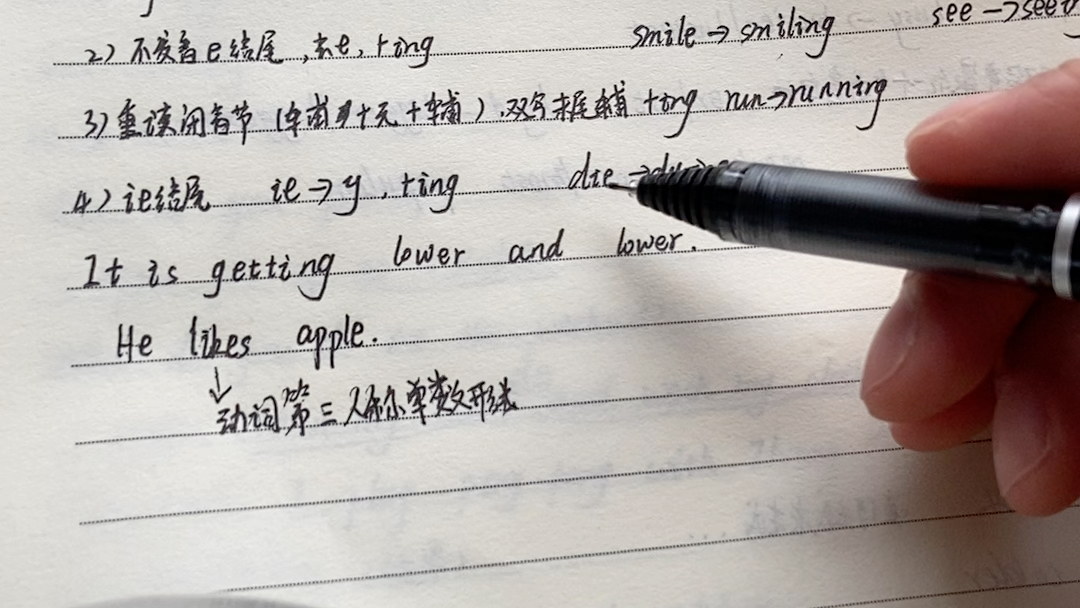 2) 不发音e结尾,去e,+ing smile→smiling see→seei
3) 重读闭音节(辅+元+辅),双写末尾辅+ing run→running
4) ie结尾 ie→y,+ing die→
It is getting lower and lower.
He likes apple.
↓
动词第三人称单数形式